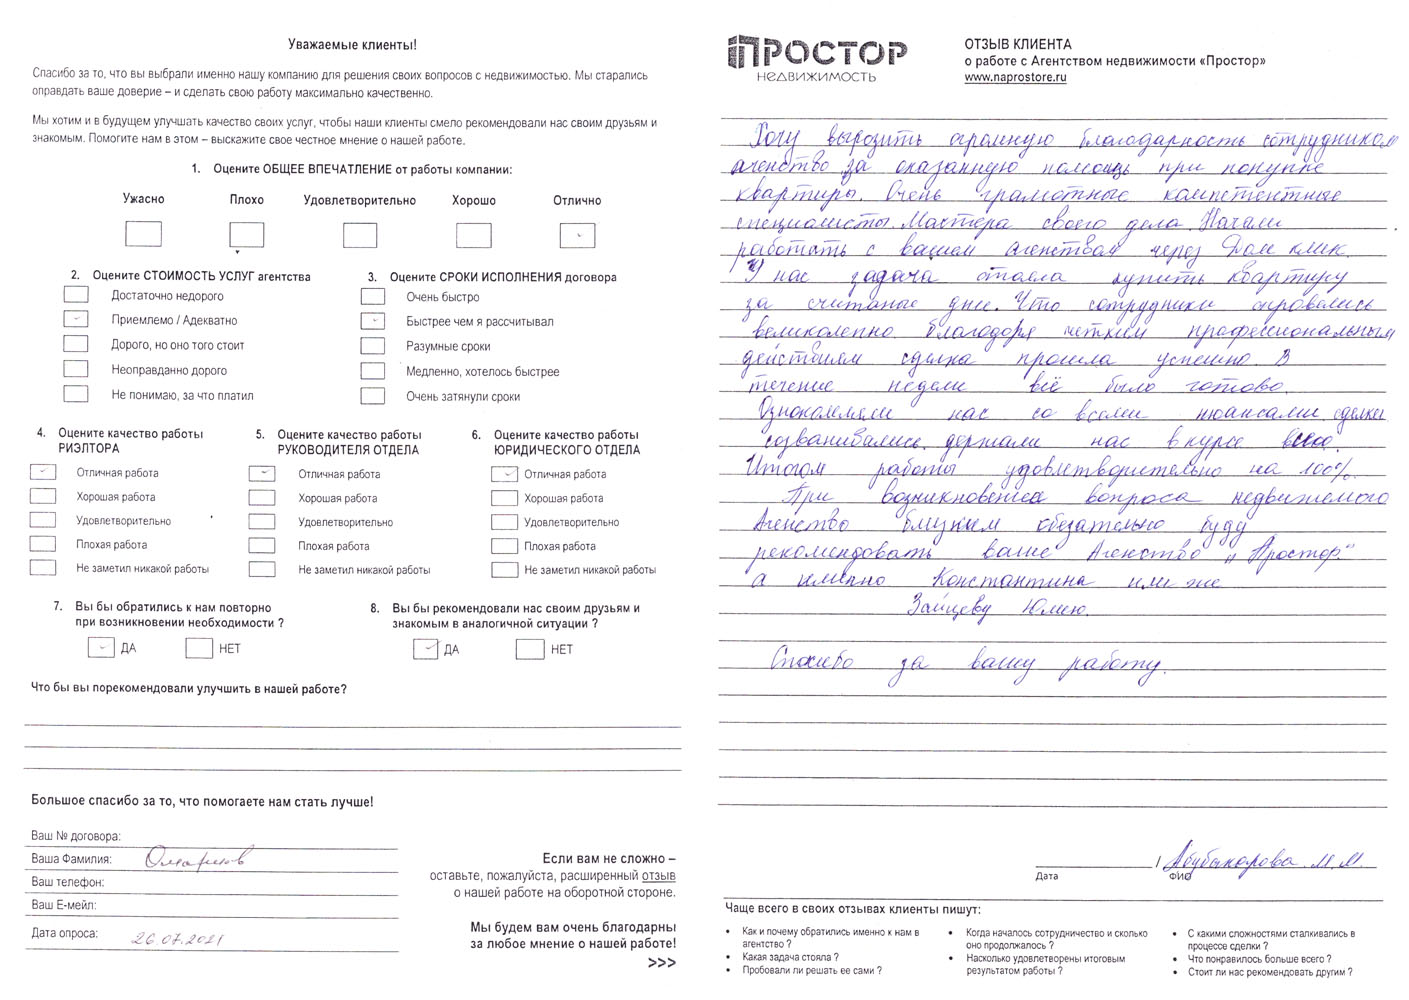 Уважаемые клиенты!
Спасибо за то, что вы выбрали именно нашу компанию для решения своих вопросов с недвижимостью. Мы старались
оправдать ваше доверие – и сделать свою работу максимально качественно.
Мы хотим и в будущем улучшать качество своих услуг, чтобы наши клиенты смело рекомендовали нас своим друзьям и
знакомым. Помогите нам в этом – выскажите свое честное мнение о нашей работе.
1. Оцените ОБЩЕЕ ВПЕЧАТЛЕНИЕ от работы компании:
Ужасно Плохо Удовлетворительно Хорошо Отлично
2. Оцените СТОИМОСТЬ УСЛУГ агентства
Достаточно недорого
Приемлемо / Адекватно
Дорого, но оно того стоит
Неоправданно дорого
Не понимаю, за что платил
3. Оцените СРОКИ ИСПОЛНЕНИЯ договора
Очень быстро
Быстрее чем я рассчитывал
Разумные сроки
Медленно, хотелось быстрее
Очень затянули сроки
4. Оцените качество работы
РИЭЛТОРА
Отличная работа
Хорошая работа
Удовлетворительно
Плохая работа
Не заметил никакой работы
5. Оцените качество работы
РУКОВОДИТЕЛЯ ОТДЕЛА
Отличная работа
Хорошая работа
Удовлетворительно
Плохая работа
Не заметил никакой работы
6. Оцените качество работы
ЮРИДИЧЕСКОГО ОТДЕЛА
Отличная работа
Хорошая работа
Удовлетворительно
Плохая работа
Не заметил никакой работы
7. Вы бы обратились к нам повторно
при возникновении необходимости ?
ДА НЕТ
8. Вы бы рекомендовали нас своим друзьям и
знакомым в аналогичной ситуации ?
ДА НЕТ
Что бы вы порекомендовали улучшить в нашей работе?
Большое спасибо за то, что помогаете нам стать лучше!
Ваш № договора:
Ваша Фамилия: Омаринов
Ваш телефон:
Ваш Е-мейл:
Дата опроса: 26.07.2021
Если вам не сложно –
оставьте, пожалуйста, расширенный отзыв
о нашей работе на оборотной стороне.
Мы будем вам очень благодарны
за любое мнение о нашей работе!
>>>
ПРОСТОР
НЕДВИЖИМОСТЬ
ОТЗЫВ КЛИЕНТА
о работе с Агентством недвижимости «Простор»
www.naprostore.ru
Хочу вырозить огромную благодарность сотрудником
агенство за оказанную помощь при покупке
квартиры. Очень грамотные компетентные
специалисты. Мастера своего дела. Начали
работать с вашем агенством через Дом клик.
У нас задача стояла купить квартиру
за считаные дни. Что сотрудники справились
великолепно. Благодоря четким профессиональным
действиям сделка прошла успешно. В
течение недели всё было готово.
Ознокомляли нас со всеми нюансами сделки
созванивались. держали нас в курсе всего.
Итогом работы удовлетворительно на 100%.
При возникновение вопроса недвижемого
Агенство близким обезательно буду
рекомендовать ваше Агенство „Простор"
а именно Константина или же
Зайцеву Юлию.
Спосибо за вашу работу.
/ Абубакарова М.М.
Дата ФИО
Чаще всего в своих отзывах клиенты пишут:
• Как и почему обратились именно к нам в
агентство ?
• Какая задача стояла ?
• Пробовали ли решать ее сами ?
• Когда началось сотрудничество и сколько
оно продолжалось ?
• Насколько удовлетворены итоговым
результатом работы ?
• С какими сложностями сталкивались в
процессе сделки ?
• Что понравилось больше всего ?
• Стоит ли нас рекомендовать другим ?